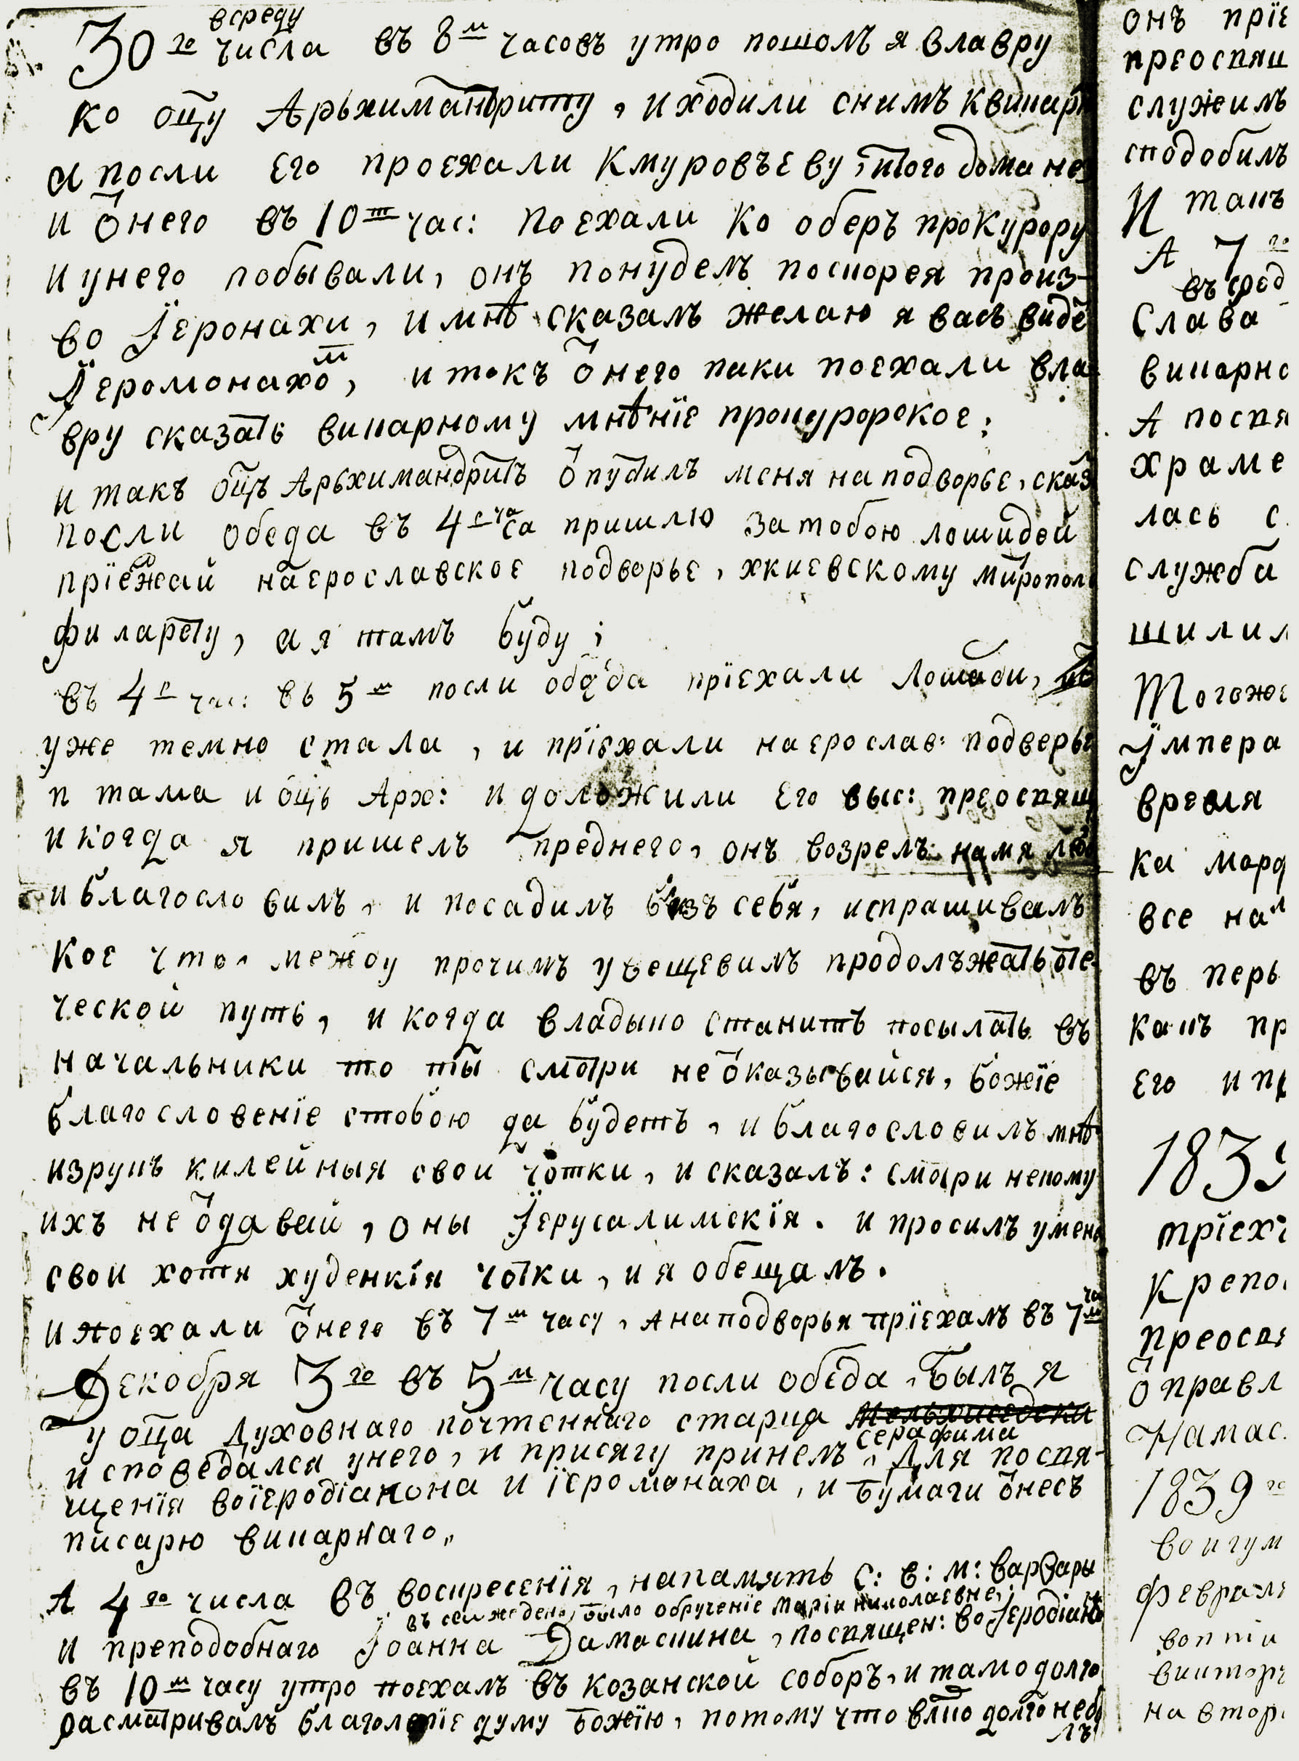 всреду
30го числа въ 8м часовъ утро пошолъ я влавру
ко оцу Арьхимандриту, и ходили снимъ квикарн
а посли его проехали Кмуровъеву, того дома не
и от него въ 10т час: поехали ко оберъ прокурору
и унего побывали, онъ понуделъ поскорея произ-
во Їеронахи, и мнѣ сказалъ желаю я васъ виде
Їеромонахом, и такъ от него паки поехали вла
вру сказать викарному мнѣнїе прокурорское;
и такъ оцъ Арьхимандритъ отпустилъ меня на подворье, сказ
посли обеда въ 4с часа пришлю за тобою лошидей
прїежай наерославское подворье, ккиевскому митропол
филарету, а я тамъ буду;
въ 4с час: въ 5м посли обеда прїехали лошади,
уже темно стала, и прїехали наерослав: подверье
и тама и оцъ Арх: и доложили его выс: преосвящ
и когда я пришелъ преднего, онъ возрелъ намя
и благословилъ, и посадилъ близъ себя, испрашивалъ
кое что, между прочимъ увещевилъ продолъжать оте-
ческой путь, и когда владыко станитъ посылать въ
начальники то ты смотри не отказывайся, божїе
благословенїе стобою да будетъ, и благословилъ мнѣ
изрукъ килейныя свои чотки, и сказалъ: смотри непому
ихъ не отдавай, оны Їерусалимскїя. и просилъ умен
свои хотя худенкїя чотки, и я обещалъ.
и поехали от него въ 7м часу, а наподворья прїехалъ въ 7м ча
Декобря 3го въ 5м часу посли обеда, былъ я
у отца духовнаго почтеннаго старца Мельхиседека
серафима
и споведался унего, и присягу принелъ, для посвя-
щенїя воїеродїакона и їеромонаха, и бумаги отнесъ
писарю викарнаго,,
А 4го числа въ воскресенїя, напамять с: в: м: варвары
въ сей же день было обрученїе Марїи николаевне;
и преподобнаго Їоанна Дамаскина, посвящен: во Їеродїак
въ 10м часу утро поехалъ въ козанской соборъ, и тамо долго
расматривалъ благолепїе думу божїю, потому что долго неб
лъ
онъ прїе
преосвящ
служилъ
сподобилъ
И такъ
А 7го
въ сред
Слава
викарно
А посвя
храме
лась с
служба
шилил
Тогоже
Їмпера
время
ка мард
все на
въ перь
какъ пр
его и пр
1839
прїех
крепо
преосвя
отправл
Намас
1839го
во игум
февраля
воппи
виктор
на втор